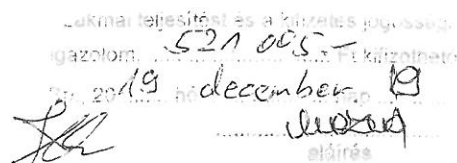 akmai teljesítés és a kifizetés jogosság
gazolom. 521 005.- Ft kifizethető
20 19 hó december nap 19
aláírás